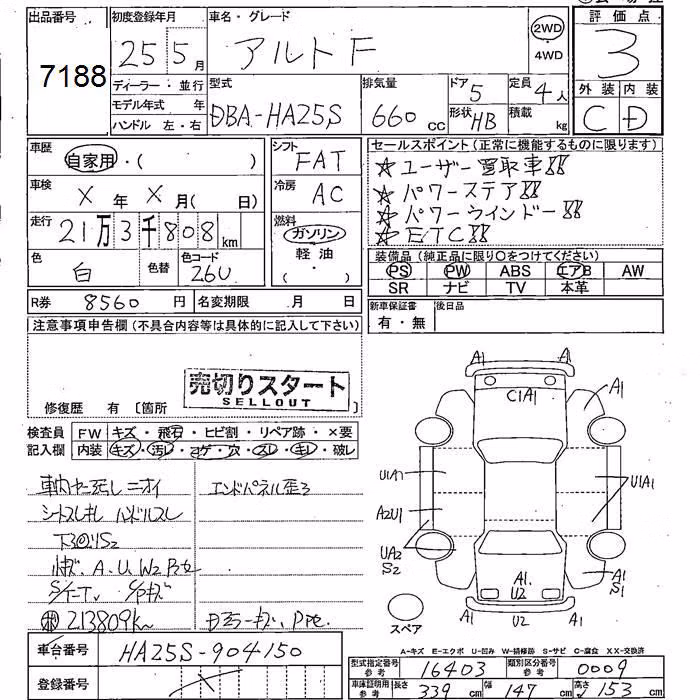 出品番号 初度登録年月 車名・グレード 評価点
7188 25 5月 アルト F 2WD・4WD 3
ディーラー・並行 型式 排気量 ドア 5 定員 4人 外装 内装
モデル年式 年 DBA-HA25S 660cc 形状 HB 積載 kg C D
ハンドル 左・右
車歴 自家用・( ) シフト FAT セールスポイント(正常に機能するものに限ります)
車検 X年X月( 日) 冷房 AC ☆ユーザー買取車!!
☆パワーステア!!
走行 21万3千808km 燃料 ガソリン・軽油・( ) ☆パワーウインドー!!
☆ETC!!
色 白 色替 色コード 26U 装備品(純正品に限り〇をつけてください)
PS PW ABS エアB AW
SR ナビ TV 本革
R券 8560円 名変期限 月 日 新車保証書 有・無 後日品
注意事項申告欄(不具合内容等は具体的に記入して下さい)
売切りスタート
SELLOUT
修復歴 有 〔箇所 〕
検査員 FW キズ・飛石・ヒビ割・リペア跡・×要
記入欄 内装 キズ・汚レ・コゲ・穴・スレ・キレ・破レ
ニオイ エンドパネル歪ミ
シートスレキレ ハンドルスレ
下回りS2
A.U.W2
213809km
A1 A1
C1A1 A1
U1A1
A2U1
UA2
S2
A1
U2
A1
S1
A1 U2 A1
スペア
A-キズ E-エクボ U-凹み W-補修跡 S-サビ C-腐食 XX-交換済
車台番号 HA25S-904150
登録番号
型式指定番号 参考 16403 類別区分番号 参考 0009
車庫証明用 参考 長さ 339cm 幅 147cm 高さ 153cm